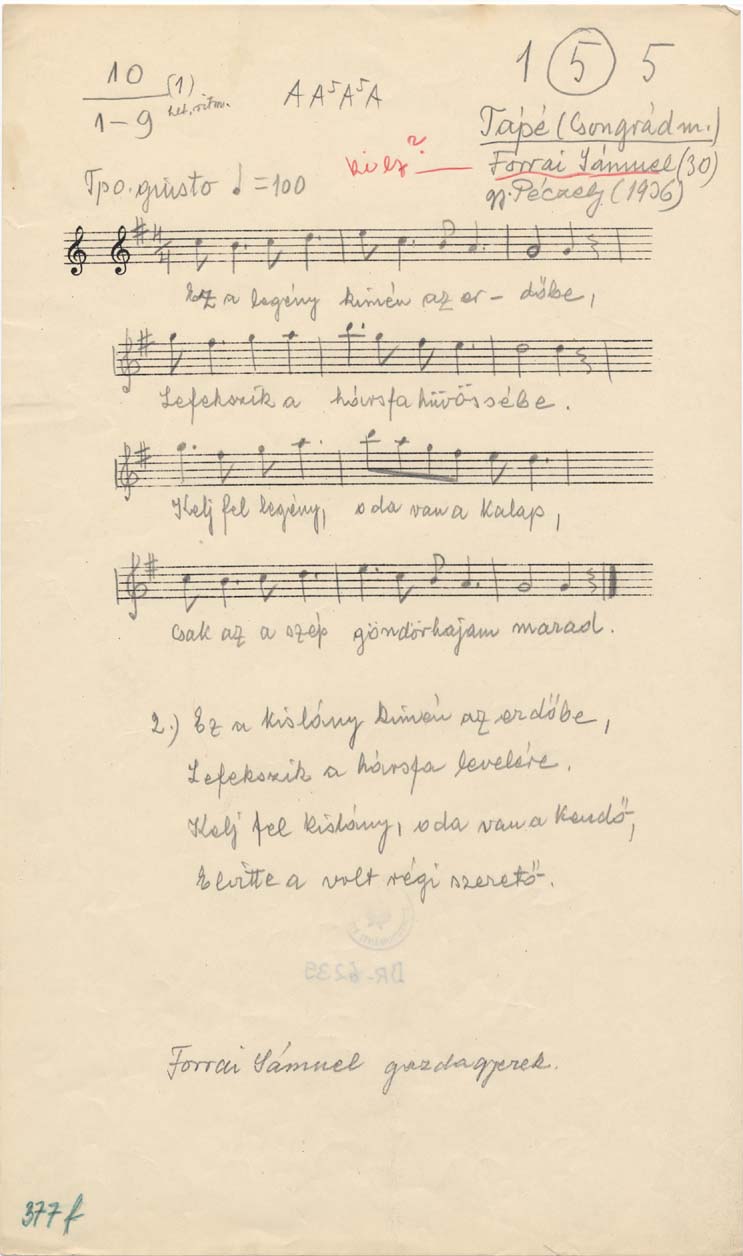 1 5 5
10 (1)
1-9 het. ritm.
A A⁵ A⁵ A
Tápé (Csongrád m.)
ki ez? Forrai Sámuel (30)
gy. Péczely (1936)
Tpo. giusto ♩=100
4/4
Ez a legény kimén az er- dőbe,
Lefekszik a hársfa hűvössébe.
Kelj fel legény, oda van a kalap,
Csak az a szép göndörhajam marad.
2.) Ez a kislány kimén az erdőbe,
Lefekszik a hársfa levelére.
Kelj fel kislány, oda van a kendő,
Elvitte a volt régi szerető.
BR-6235
Forrai Sámuel gazdagyerek.
377f